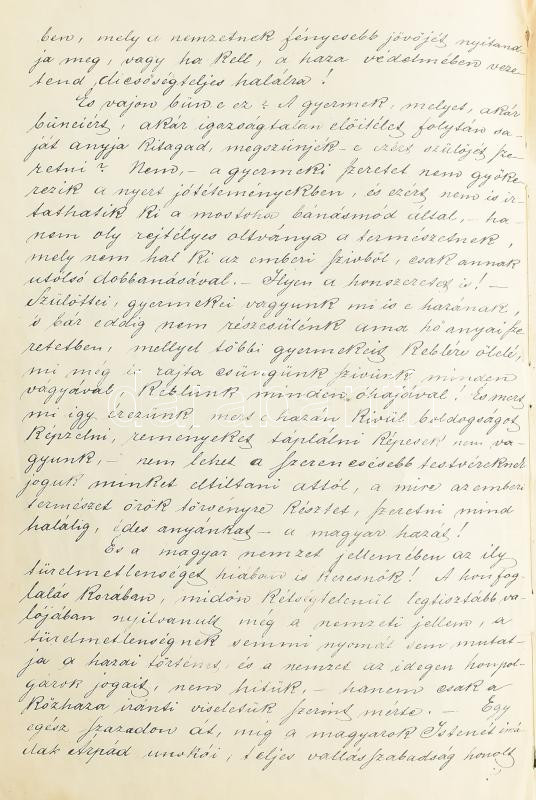 ben, mely a nemzetnek fényesebb jövőjét nyitand-
ja meg, vagy ha kell, a haza védelmében veze-
tend dicsőségteljes halálra!
És vajon bűn e ez? A gyermek, melyet, akár
bűneiért, akár igazságtalan előítélet folytán sa-
ját anyja kitagad, megszünjék-e ezért szülőjét sze-
retni? Nem, – a gyermeki szeretet nem gyöke-
rezik a nyert jótéteményekben, és ezért nem is ir-
tathatik ki a mostoha bánásmód által, – ha-
nem oly rejtélyes oltványa a természetnek,
mely nem hal ki az emberi szivből, csak annak
utolsó dobbanásával. – Ilyen a honszeretet is! –
Szülöttei, gyermekei vagyunk mi is e hazának,
s bár eddig nem részesülénk ama hő anyai sze-
retetben, mellyel többi gyermekeit keblére ölelé,
mi még is rajta csüngünk szivünk minden
vagyával, keblünk minden óhajával! És mert
mi így érezünk, mert e hazán kivül boldogságot
képzelni, reményeket táplálni képesek nem va-
gyunk, – nem lehet a szerencsésebb testvéreknek
joguk minket eltiltani attól, a mire az emberi
természet örök törvénye késztet, szeretni mind
halálig, édes anyánkat – a magyar hazát!
És a magyar nemzet jellemében az ily
türelmetlenséget hiában is keresnők! A honfog-
lalás korában, midőn kétségtelenül legtisztább va-
lójában nyilvánult meg a nemzeti jellem, a
türelmetlenségnek semmi nyomát sem mutat-
ja a hazai történet, és a nemzet az idegen honpol-
gárok jogait, nem hitük, – hanem csak a
közhaza iránti viseletük szerint mérte. – Egy
egész századon át, míg a magyarok Istenét imá-
dták Árpád unokái, teljes vallásszabadság honolt